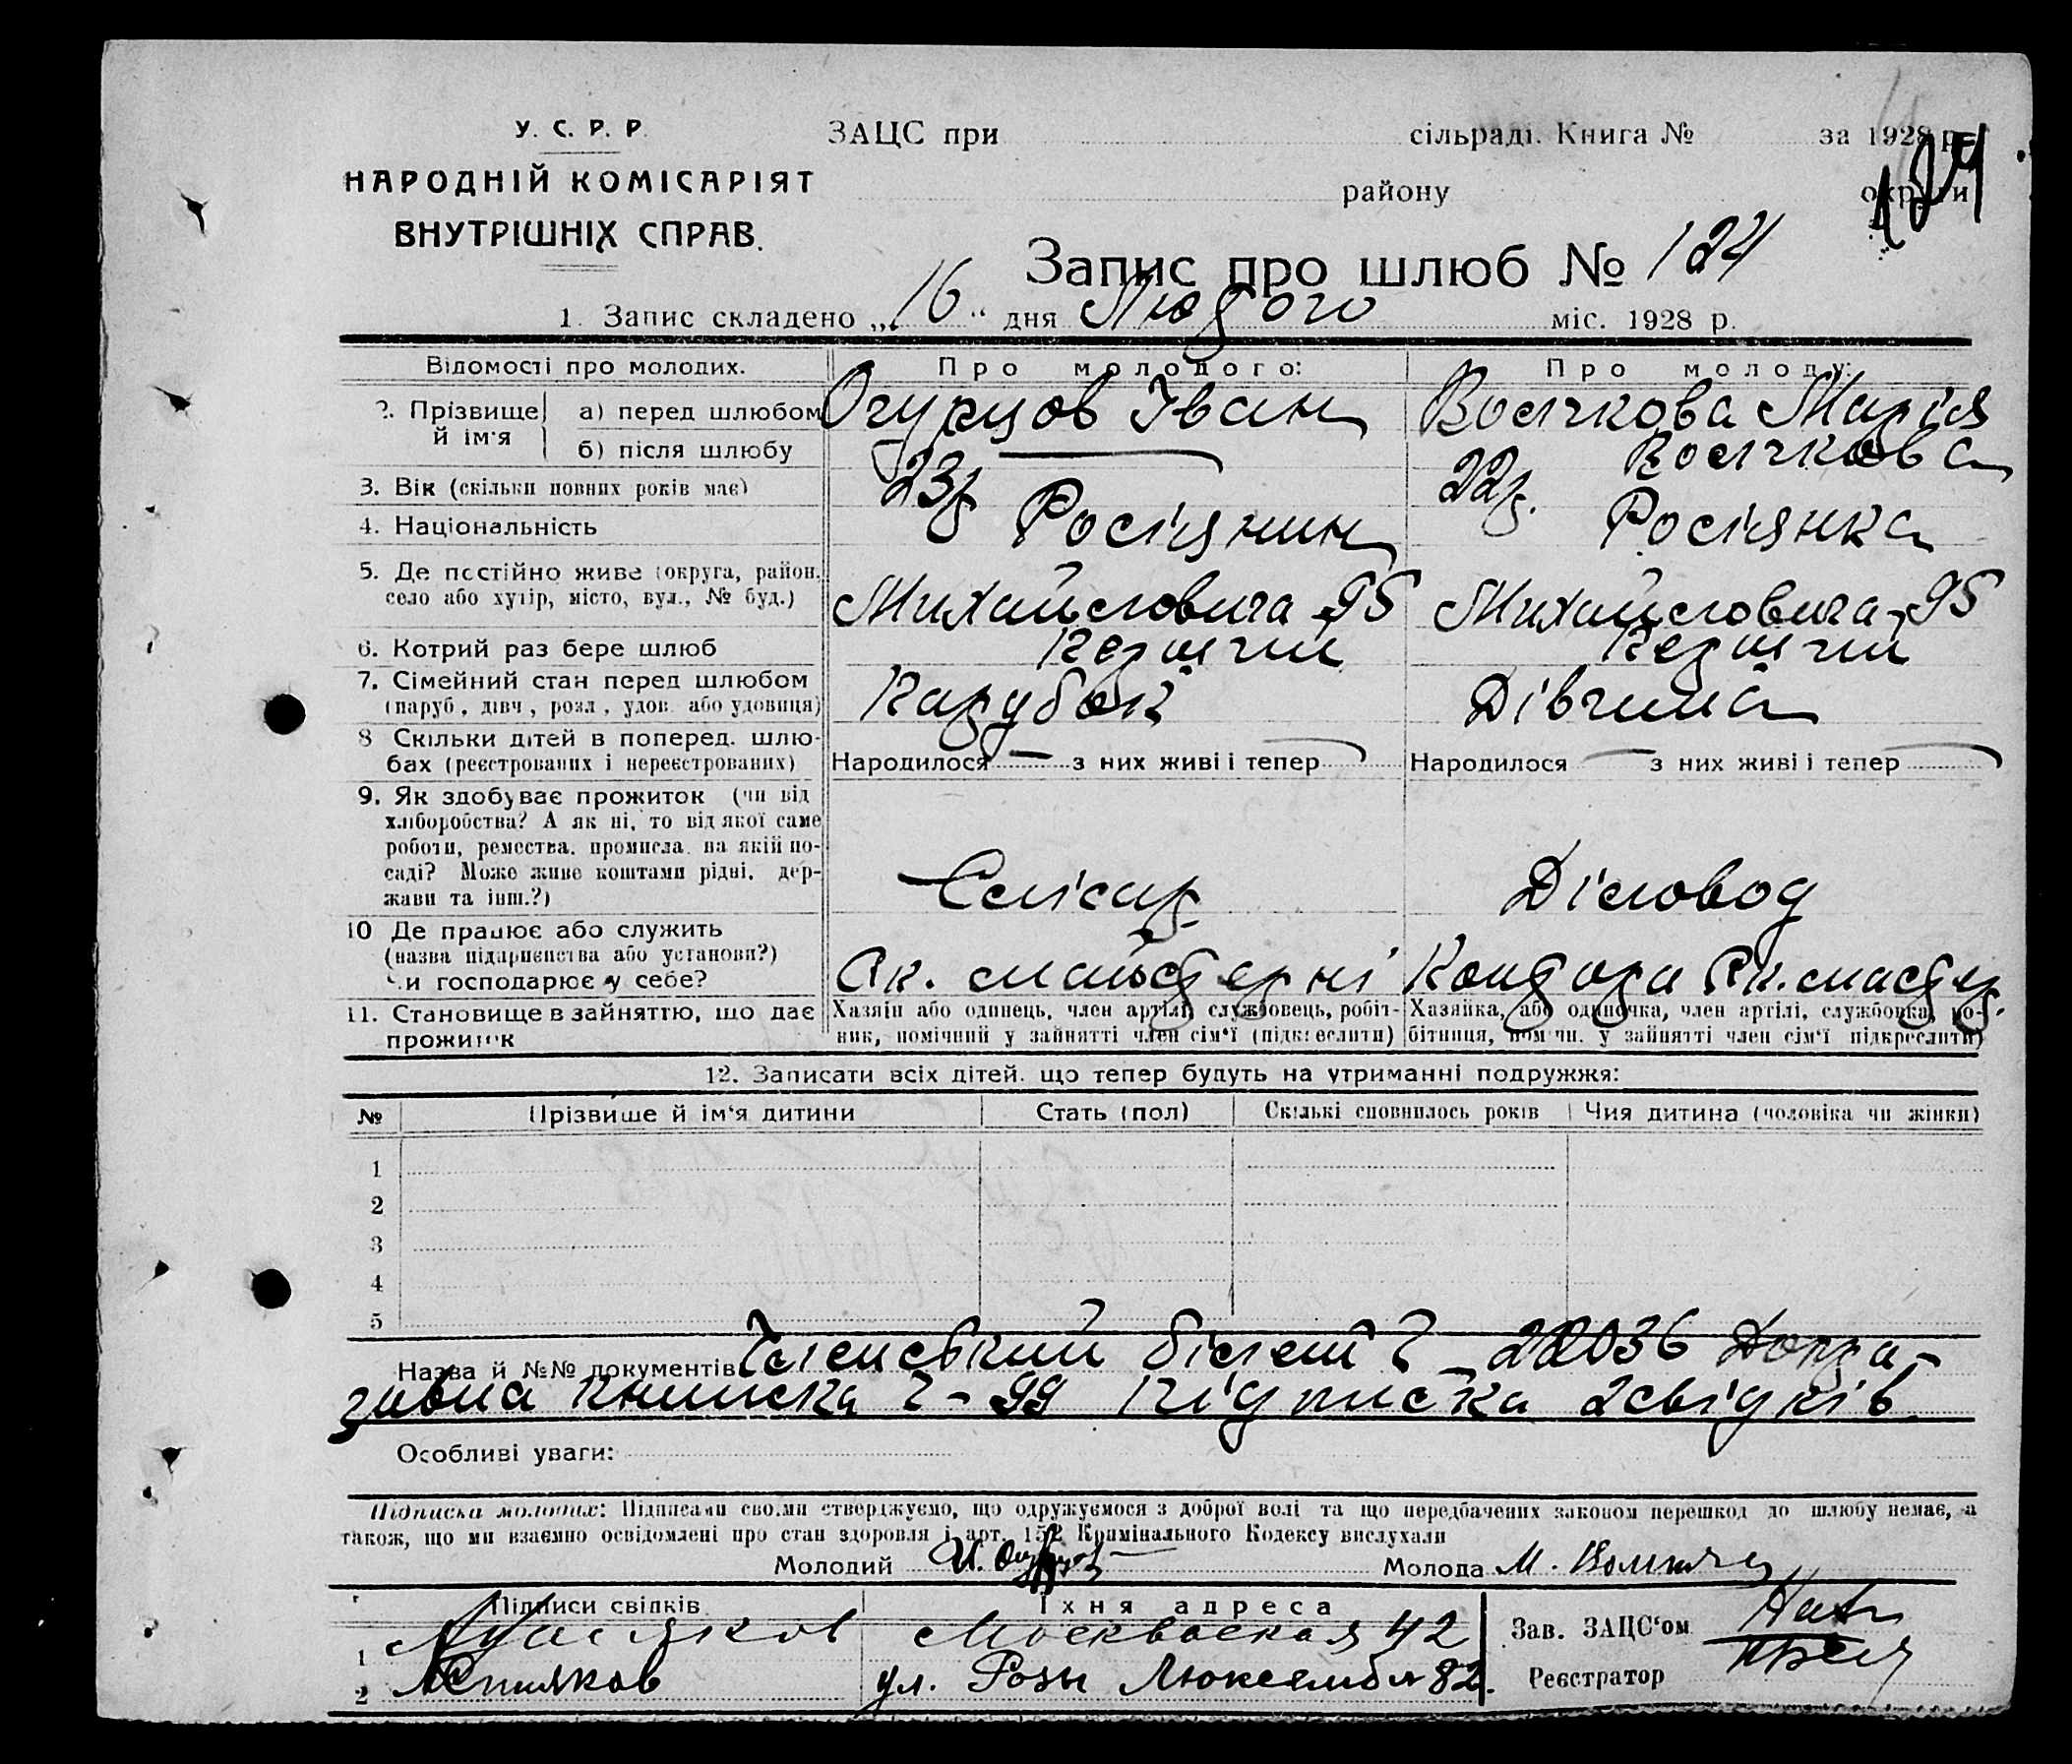 У. С. Р. Р.
НАРОДНІЙ КОМІСАРІЯТ
ВНУТРІШНІХ СПРАВ.
ЗАЦС при сільраді. Книга № за 1928 р.
району округи
124
Запис про шлюб № 124
1. Запис складено „16" дня Лютого міс. 1928 р.
Відомості про молодих. Про молодого: Про молоду:
2. Прізвище й ім'я
а) перед шлюбом Огурцов Іван Волчкова Марія
б) після шлюбу — Волчкова
3. Вік (скільки повних років має) 23р 22р.
4. Національність Росіянин Росіянка
5. Де постійно живе (округа, район,
село або хутір, місто, вул., № буд.) Михайловича-95 Михайловича-95
6. Котрий раз бере шлюб Перший Перший
7. Сімейний стан перед шлюбом
(паруб., дівч., розл., удов. або удовиця) Парубок Дівчина
8 Скільки дітей в поперед. шлю-
бах (реєстрованих і нереєстрованих) Народилося — з них живі і тепер — Народилося — з них живі і тепер —
9. Як здобуває прожиток (чи від
хліборобства? А як ні, то від якої саме
роботи, ремества, промисла, на якій по-
саді? Може живе коштами рідні, дер-
жави та інш.?) Слісар Діловод
10 Де працює або служить
(назва підприємства або установи?)
чи господарює у себе? Ак. майстерні Контора Ак. мастер.
11. Становище в зайняттю, що дає
прожиток
Хазяїн або одинець, член артілі, службовець, робіт-
ник, помічний у зайнятті член сім'ї (підкреслити)
Хазяйка, або одиночка, член артілі, службовка, ро-
бітниця, помічн. у зайнятті член сім'ї підкреслити)
12. Записати всіх дітей, що тепер будуть на утриманні подружжя:
№ Прізвище й ім'я дитини Стать (пол) Скількі сповнилось років Чия дитина (чоловіка чи жінки)
1
2
3
4
5
Назва й №№ документів Членський білет Ч-22036 Допра-
зивна книжка ч-99 Підписка 2 свідків
Особливі уваги:
Підписка молодих: Підписами своїми стверджуємо, що одружуємося з доброї волі та що передбачених законом перешкод до шлюбу немає, а
також, що ми взаємно освідомлені про стан здоровля і арт. 152 Кримінального Кодексу вислухали
Молодий И. Огурцов Молода М. Волчкова
Підписи свідків Їхня адреса
1 Московская 42
2 ул. Розы Люксембл 82.
Зав. ЗАЦС'ом
Реєстратор